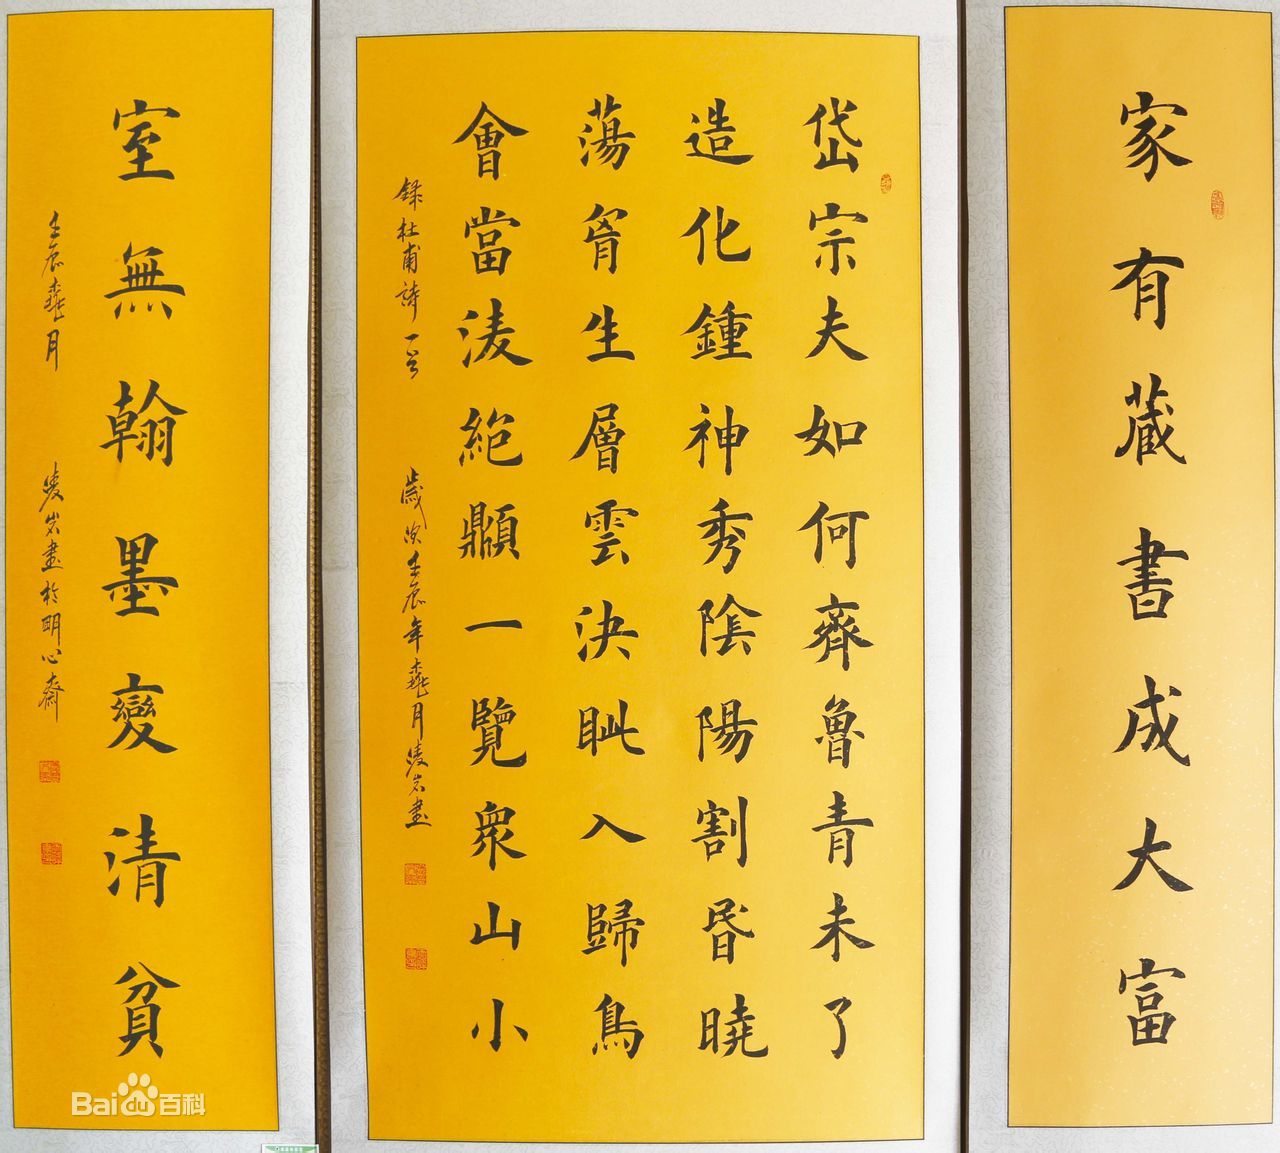 家有藏書成大富
岱宗夫如何齊魯青未了
造化鍾神秀陰陽割昬曉
蕩胷生層雲決眦入歸鳥
會當淩絶顛一覽衆山小
録杜甫詩一首 歲次壬辰年月書
室無翰墨變清貧
壬辰月 書於明心齋
Baidu百科